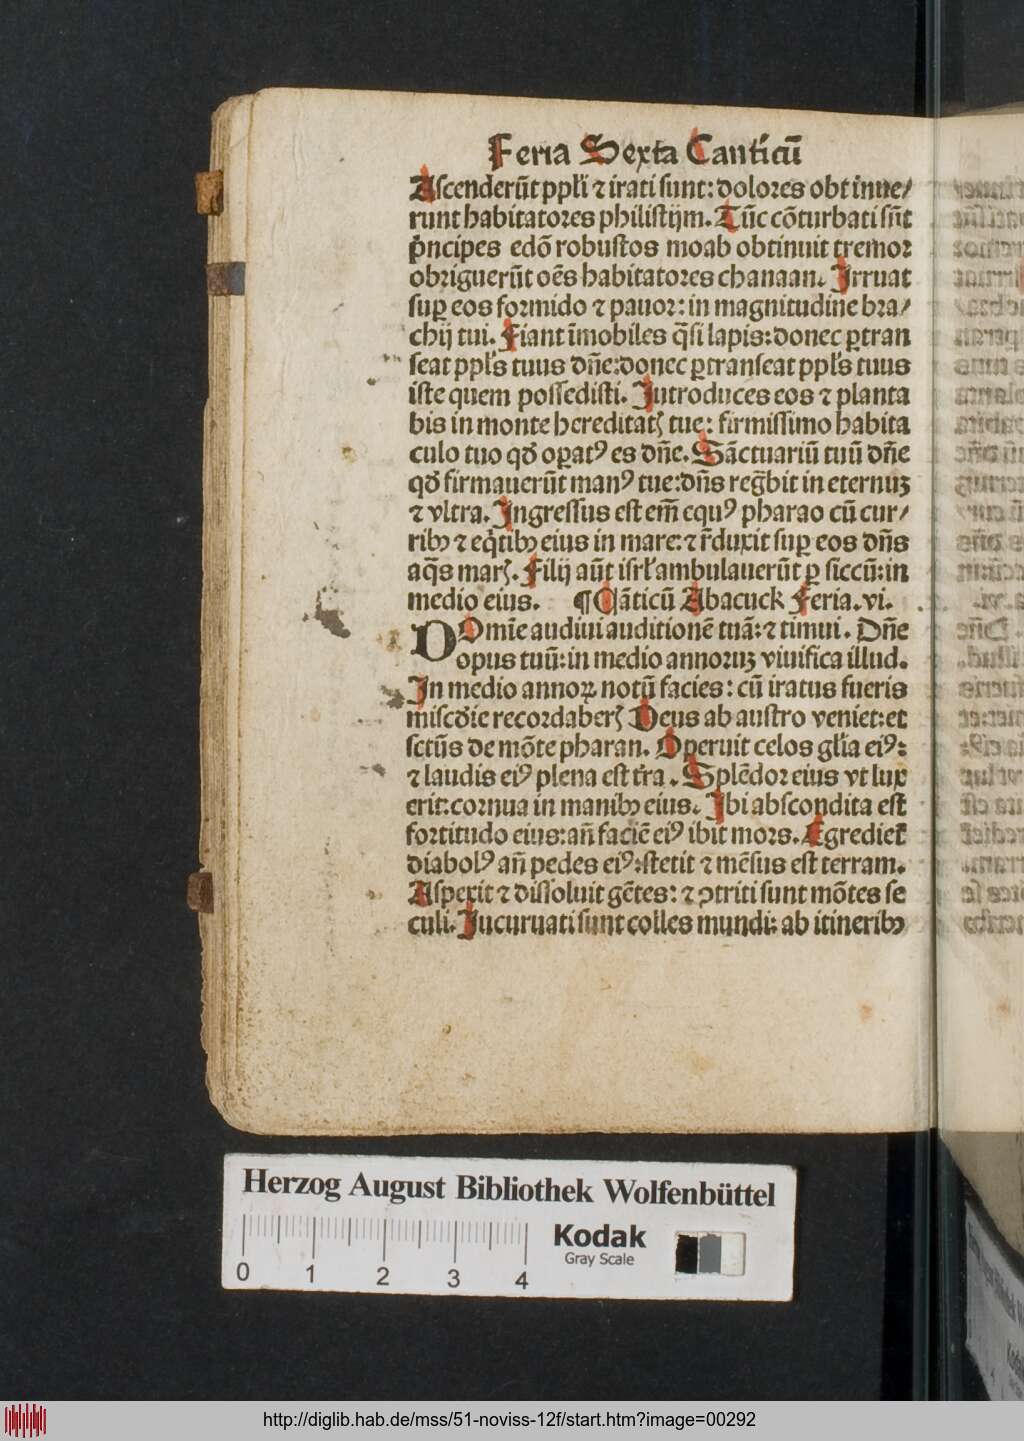 Feria Sexta Canticū
Ascenderūt ppl'i ⁊ irati sunt: dolores obtinue/
runt habitatores philistijm. Tūc cōturbati sūt
pͥncipes edō robustos moab obtinuit tremor
obriguerūt oēs habitatores chanaan. Irruat
suꝑ eos formido ⁊ pauor: in magnitudine bra/
chij tui. Fiant īmobiles q̄si lapis: donec ꝑtran
seat ppl's tuus dn̄e: donec ꝑtranseat ppl's tuus
iste quem possedisti. Introduces eos ⁊ planta
bis in monte hereditatꝭ tue: firmissimo habita
culo tuo qđ oꝑatꝰ es dn̄e. Sāctuariū tuū dn̄e
qđ firmauerūt manꝰ tue: dn̄s regn̄bit in eternuꝫ
⁊ vltra. Ingressus est em̄ equꝰ pharao cū cur/
ribꝰ ⁊ eq̄tibꝰ eius in mare: ⁊ r̄duxit suꝑ eos dn̄s
aq̄s marꝭ. Filij aūt isrl' ambulauerūt ꝑ siccū: in
medio eius. ¶ Cāticū Abacuck Feria. vi.
DOmīe audiui auditionē tuā: ⁊ timui. Dn̄e
opus tuū: in medio annoruꝫ viuifica illud.
In medio annoꝝ notū facies: cū iratus fueris
miscđie recordaberꝭ Deus ab austro veniet: et
sctūs de mōte pharan. Operuit celos gl'ia eiꝰ:
⁊ laudis eiꝰ plena est tr̄a. Splēdor eius vt lux
erit: cornua in manibꝰ eius. Ibi abscondita est
fortitudo eius: an̄ faciē eiꝰ ibit mors. Egrediet̄
diabolꝰ an̄ pedes eiꝰ: stetit ⁊ mēsus est terram.
Aspexit ⁊ dissoluit gētes: ⁊ ꝯtriti sunt mōtes se
culi. Incuruati sunt colles mundi: ab itineribꝰ
Herzog August Bibliothek Wolfenbüttel
Kodak
Gray Scale
0 1 2 3 4
http://diglib.hab.de/mss/51-noviss-12f/start.htm?image=00292